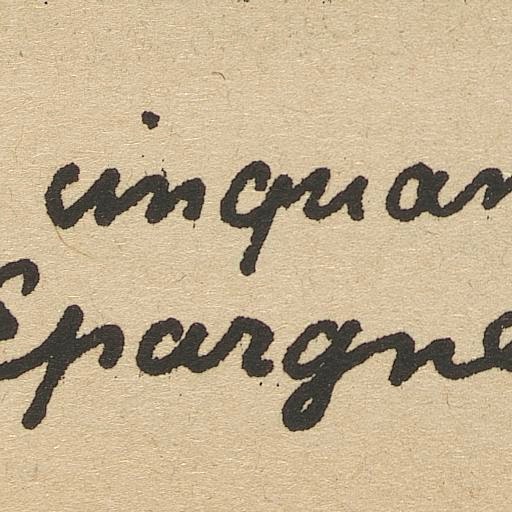 cinquan
Epargne